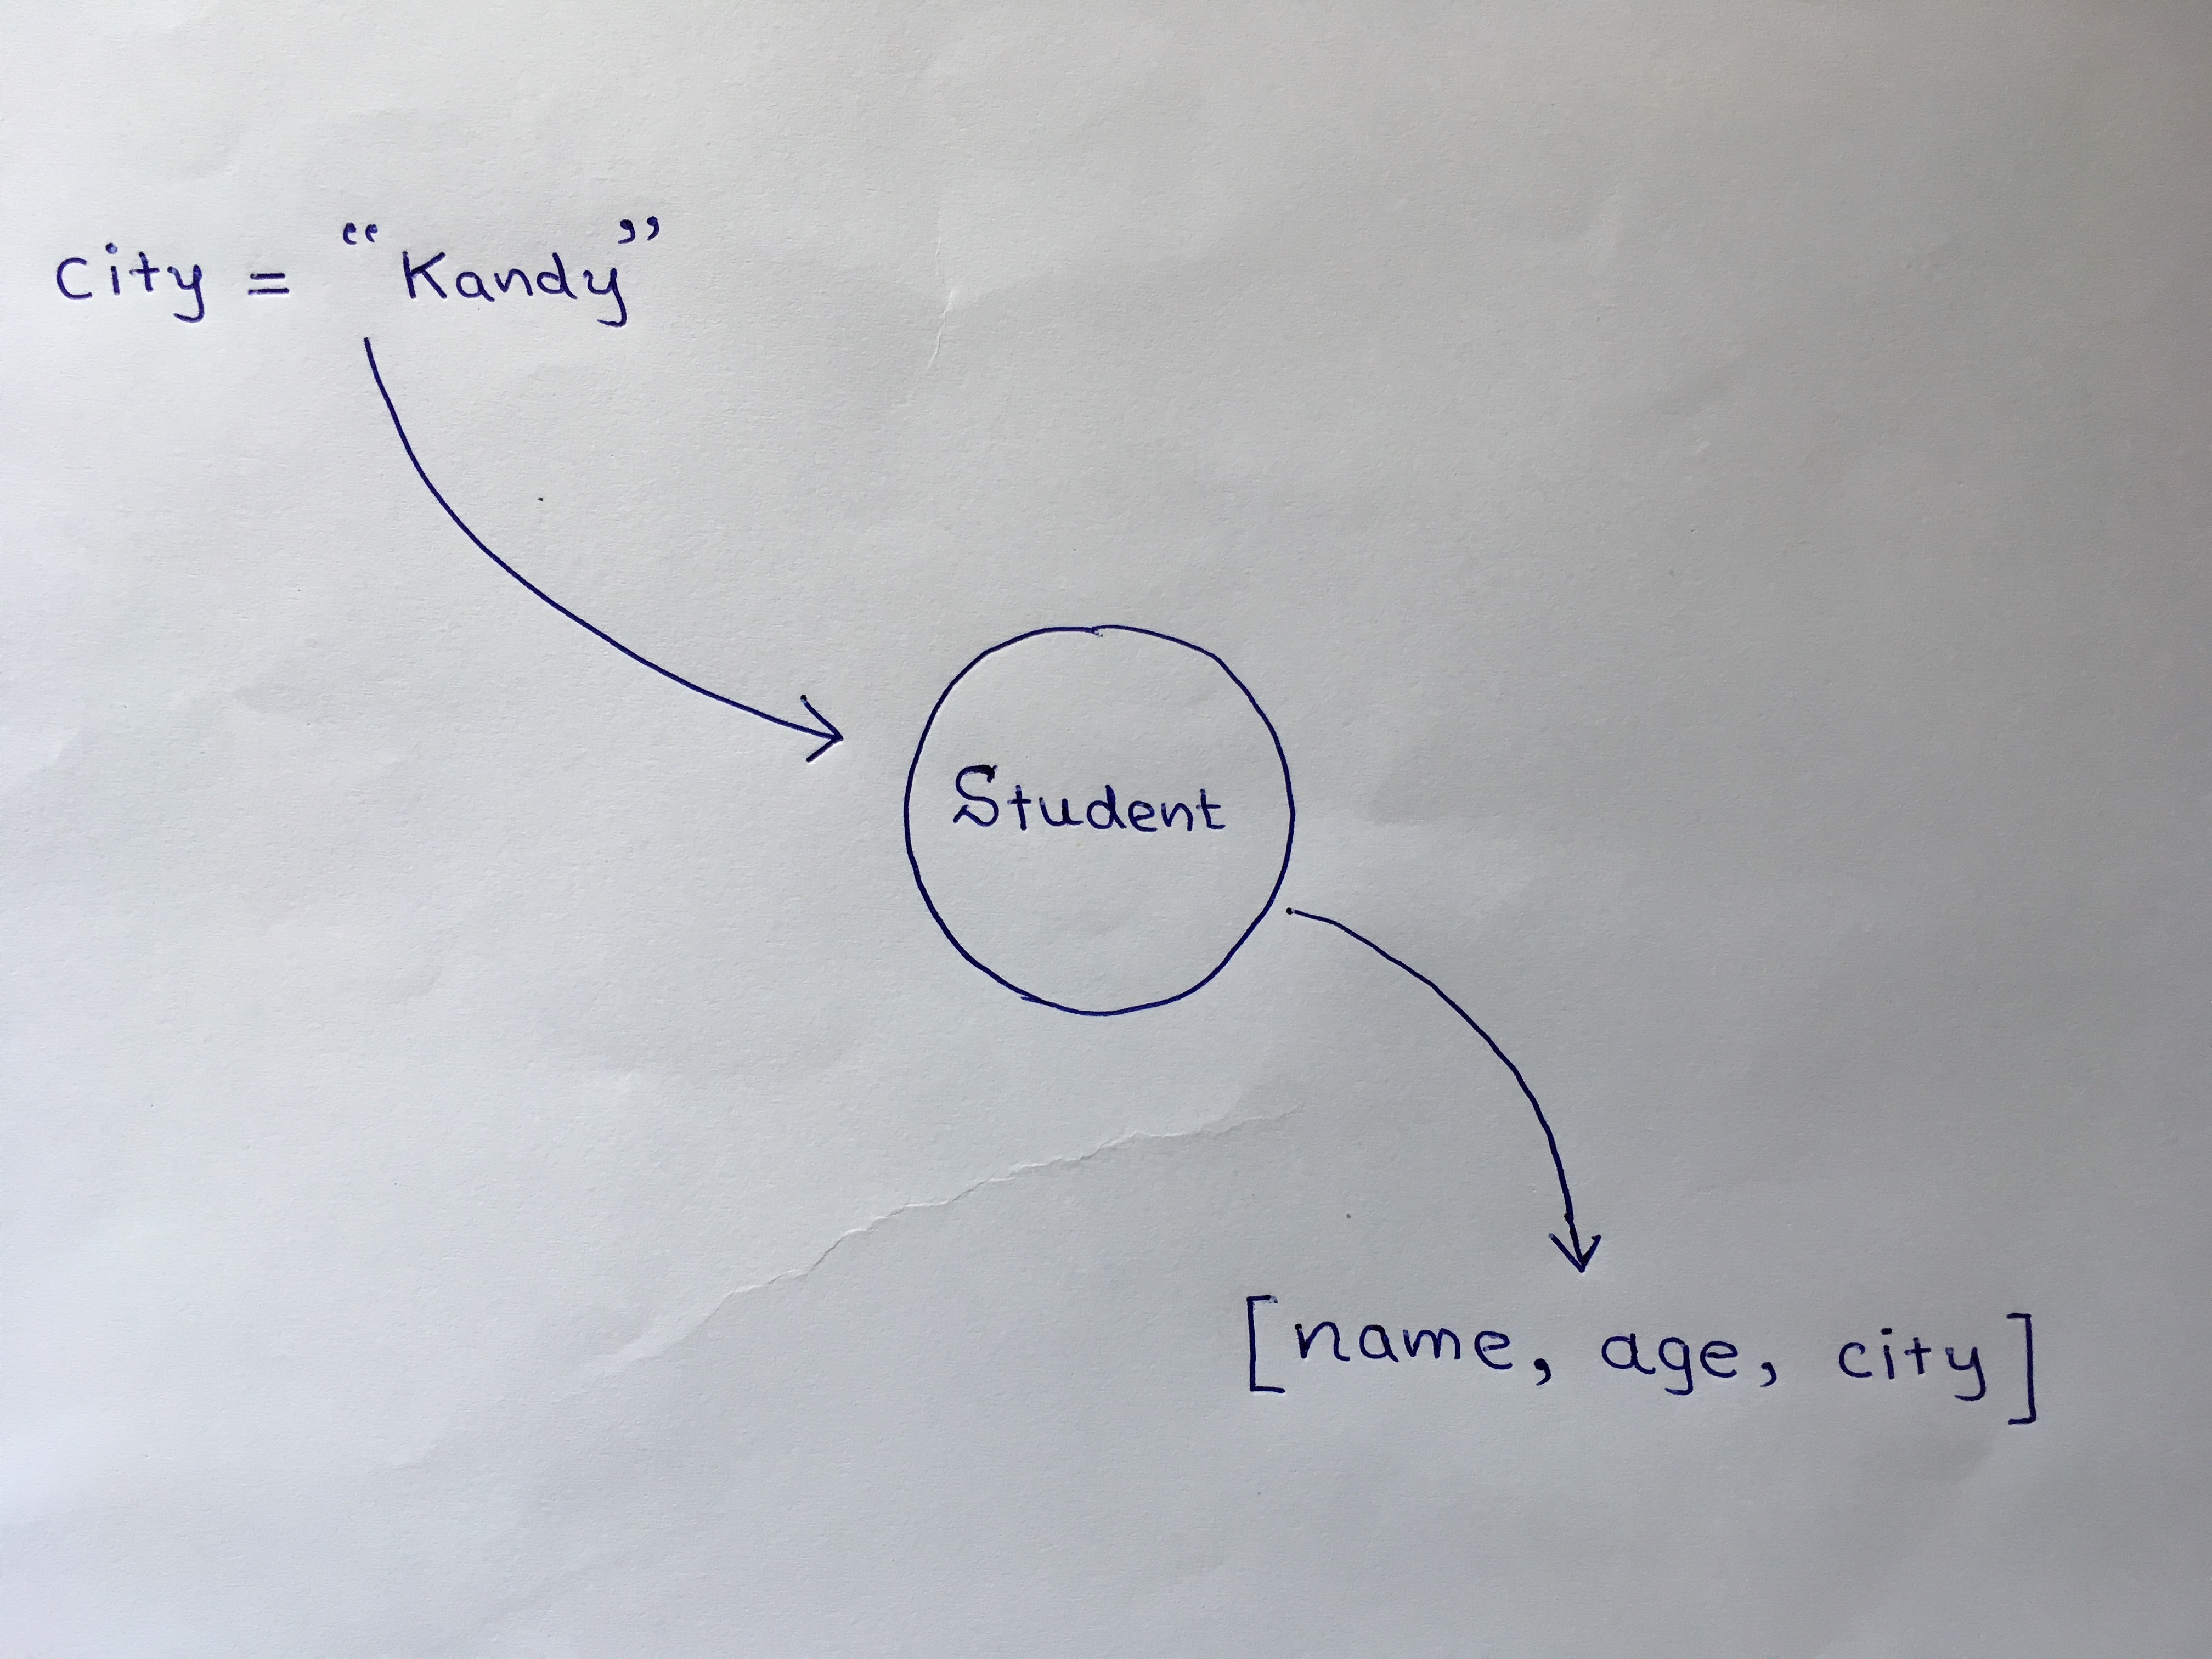 city = “Kandy”
Student
[name, age, city]